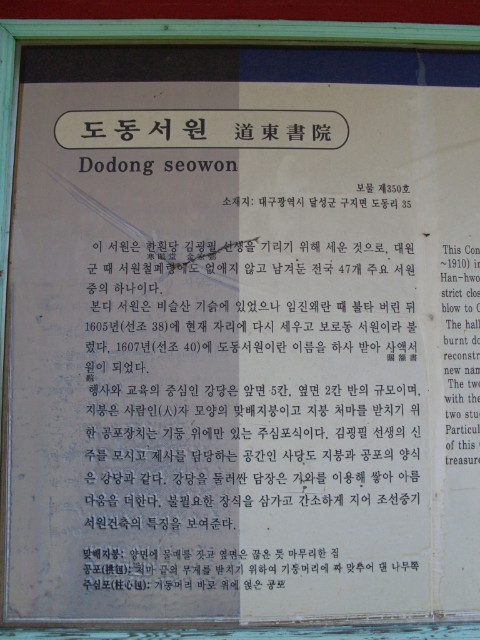 도동서원 道東書院
Dodong seowon
보물 제350호
소재지: 대구광역시 달성군 구지면 도동리 35
이 서원은 한훤당 김굉필 선생을 기리기 위해 세운 것으로, 대원
寒暄堂 金宏弼
군 때 서원철폐령에도 없애지 않고 남겨둔 전국 47개 주요 서원
중의 하나이다.
본디 서원은 비슬산 기슭에 있었으나 임진왜란 때 불타 버린 뒤
1605년(선조 38)에 현재 자리에 다시 세우고 보로동 서원이라 불
렀다. 1607년(선조 40)에 도동서원이란 이름을 하사 받아 사액서
賜額書
원이 되었다.
院
행사와 교육의 중심인 강당은 앞면 5칸, 옆면 2칸 반의 규모이며,
지붕은 사람인(人)자 모양의 맞배지붕이고 지붕 처마를 받치기 위
한 공포장치는 기둥 위에만 있는 주심포식이다. 김굉필 선생의 신
주를 모시고 제사를 담당하는 공간인 사당도 지붕과 공포의 양식
은 강당과 같다. 강당을 둘러싼 담장은 기와를 이용해 쌓아 아름
다움을 더한다. 불필요한 장식을 삼가고 간소하게 지어 조선중기
서원건축의 특징을 보여준다.
맞배지붕: 양면에 물매를 짓고 옆면은 끊은 듯 마무리한 집
공포(栱包): 처마 끝의 무게를 받치기 위하여 기둥머리에 짜 맞추어 댄 나무쪽
주심포(柱心包): 기둥머리 바로 위에 얹은 공포
This Con
~1910) in
Han-hwo
strict clos
blow to C
The hall
burnt do
reconstr
new nam
The two
with the
two stud
Particul
of this
treasure